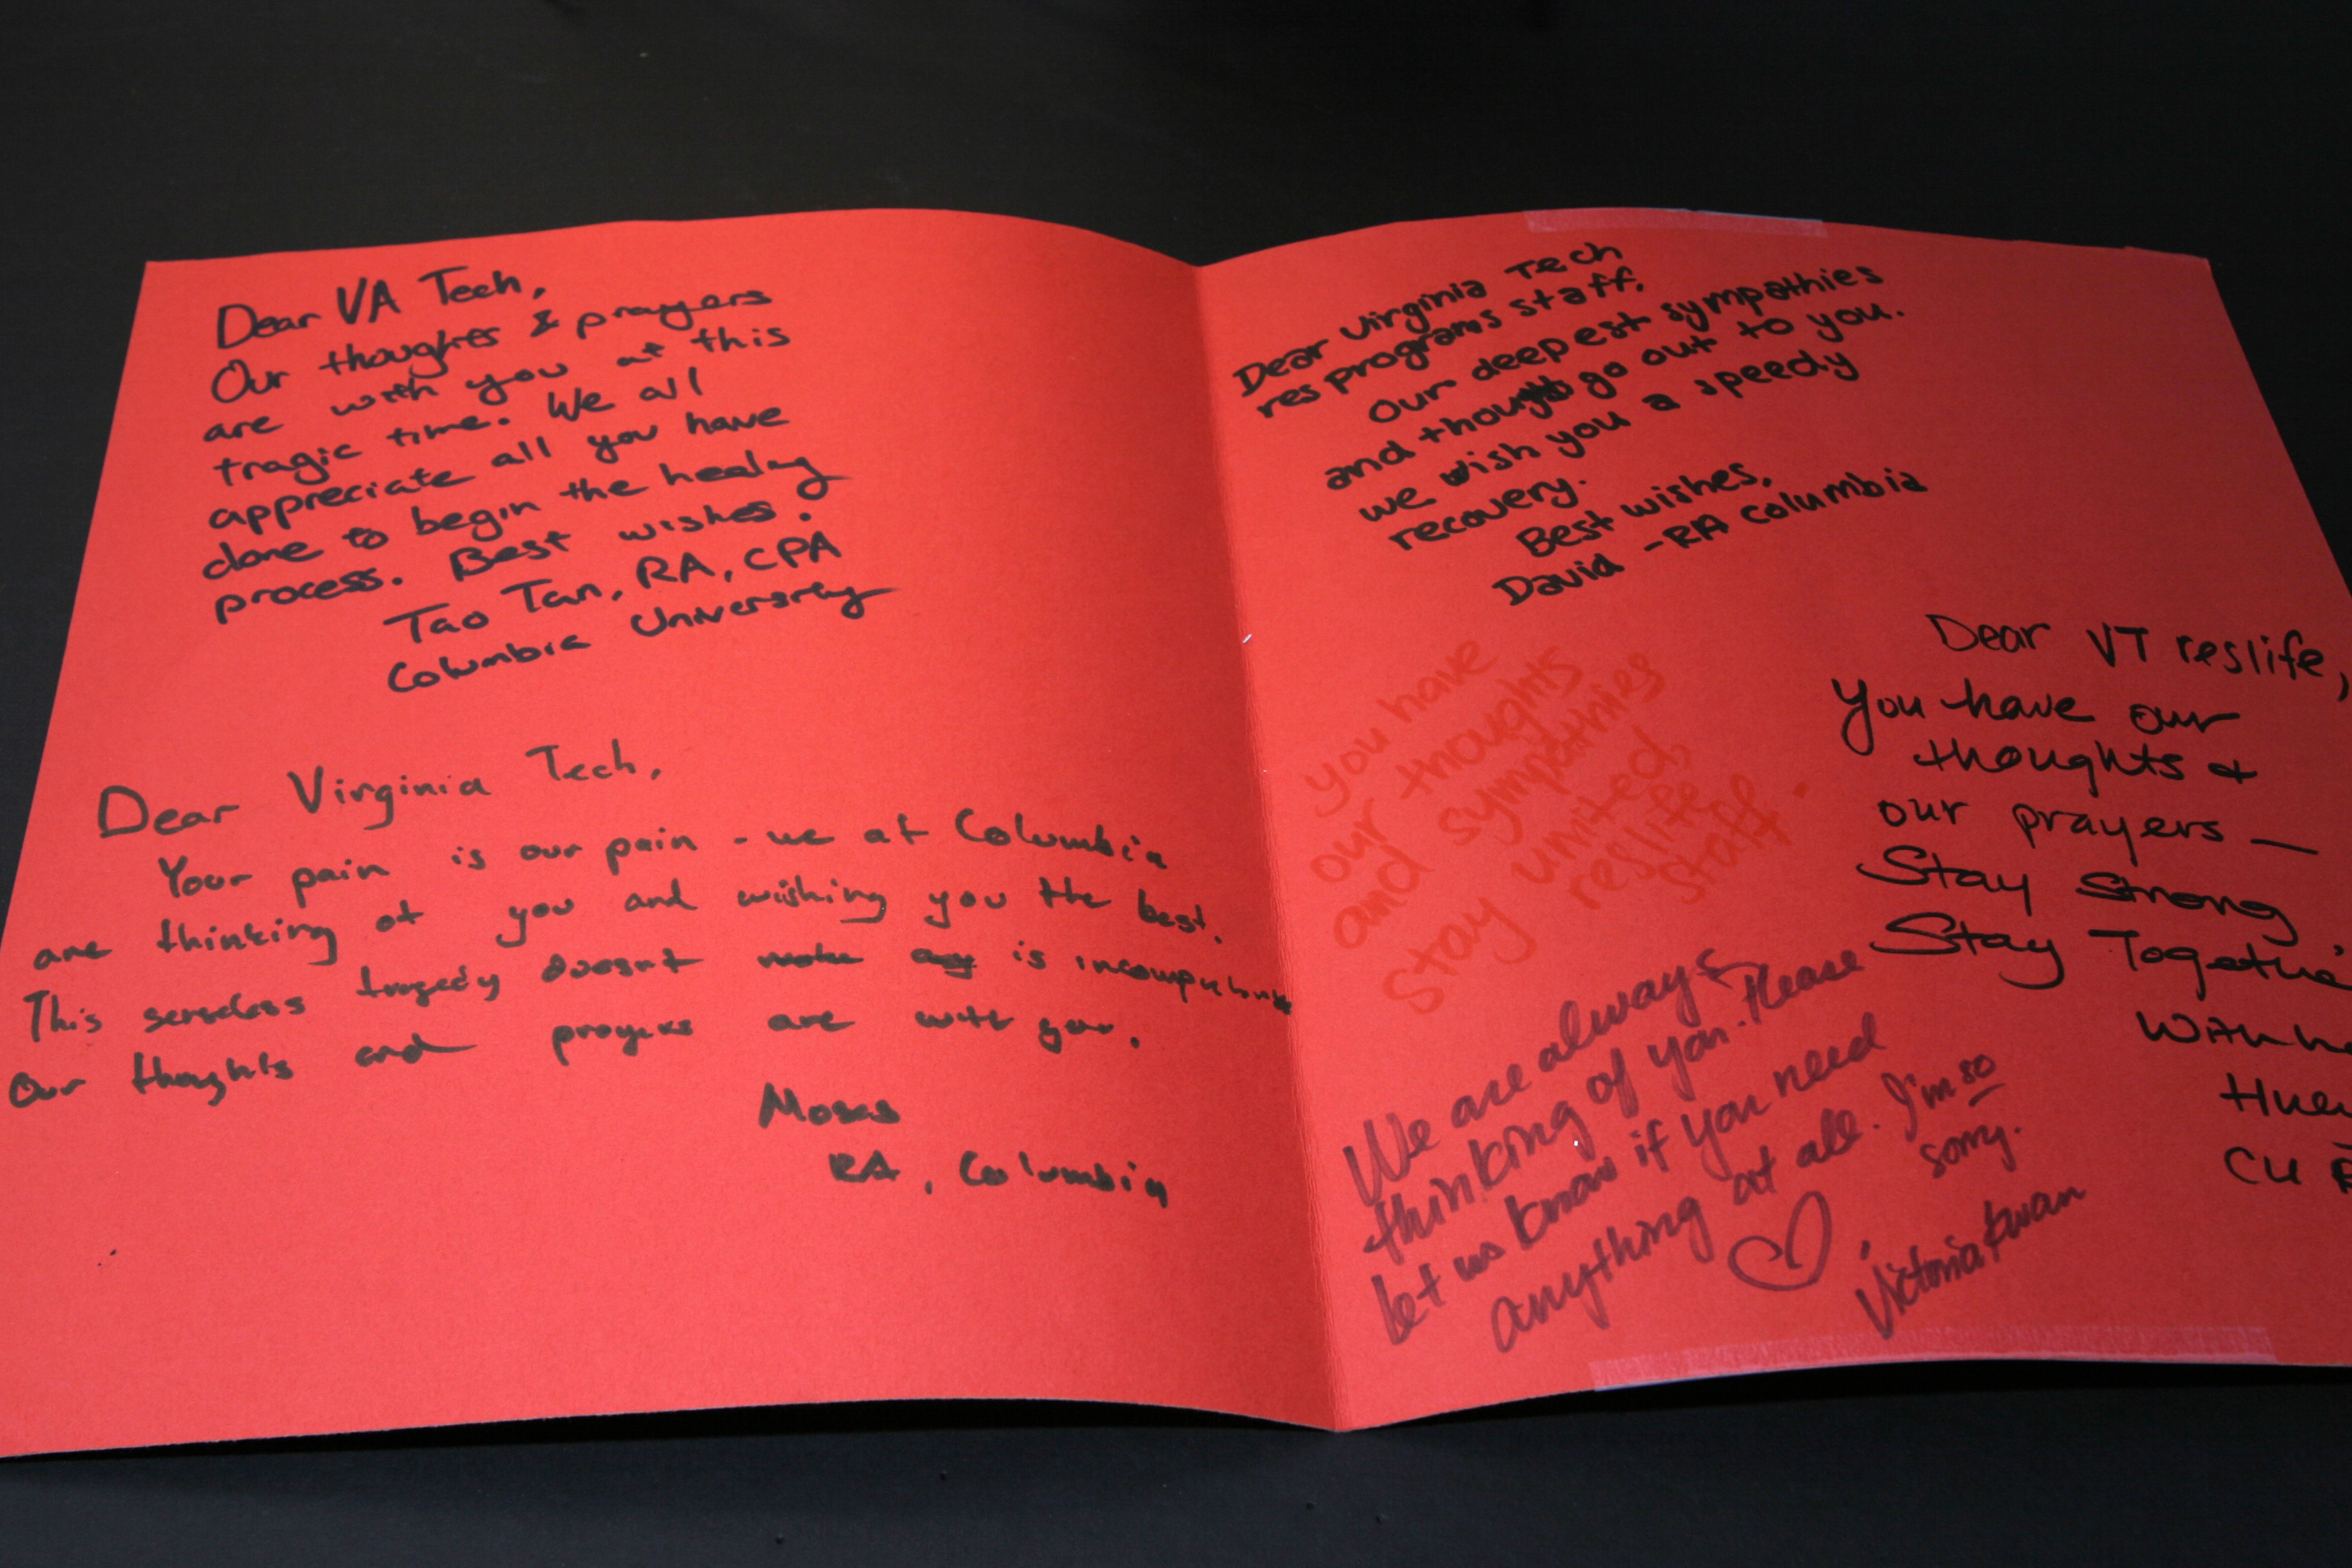 Dear VA Tech,
Our thoughts & prayers
are with you at this
tragic time. We all
appreciate all you have
done to begin the healing
process. Best wishes.
Tao Tan, RA, CPA
Columbia University
Dear Virginia Tech,
Your pain is our pain - we at Columbia
are thinking of you and wishing you the best.
This senseless tragedy doesnt make any is
Our thoughts and prayers are with you.
Moses
RA, Columbia
Dear Virginia Tech
res programs staff,
Our deepest sympathies
and thoughts go out to you.
we wish you a speedy
recovery.
Best wishes,
David - RA Columbia
you have
our thoughts
and sympathies
stay united,
reslife
staff.
We are always
thinking of you. Please
let us know if you need
anything at all. I'm so
sorry.
♡, Victoria Kwan
Dear VT reslife,
You have our
thoughts &
our prayers —
Stay Strong
Stay Togethe
With
CU